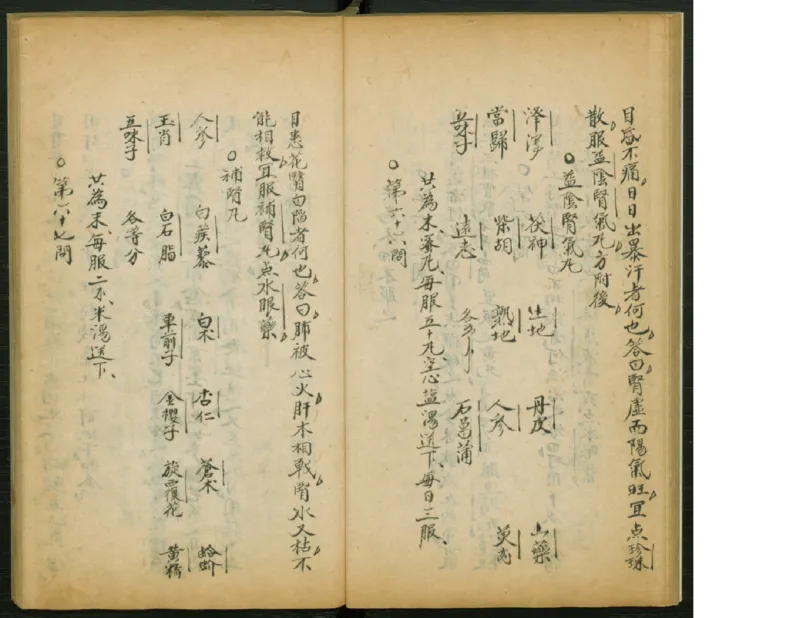 目家不痛日日出暴汗者何也答曰腎虛而陽氣旺宜点珍珠
散服益陰腎氣丸方附後
○益陰腎氣丸
澤瀉 茯神 生地 丹皮 山藥
當歸 柴胡 熟地 人參 萸肉
五味子 遠志 石菖蒲
共為末蜜丸每服五十丸空心盐湯送下每日三服
○第六十六問
目患花醫白陷者何也答曰肺被心火肝木相戰腎水又枯不
能相救宜服補腎丸点水眼藥
○補腎丸
人參 白蒺藜 白朮 杏仁 蒼朮 蛤蚧
玉肖 白石脂 車前子 金櫻子 旋覆花 黃精
五味子 各等分
共為末每服二不米湯送下
○第六十七問